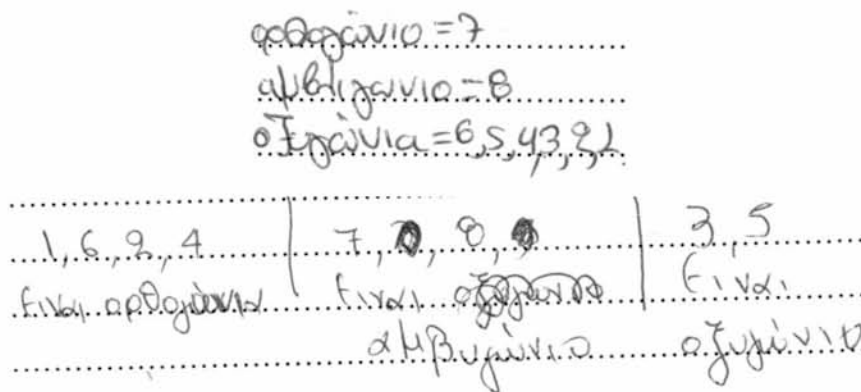 ορθογώνιο = 7
αμβλιγωνιο = 8
οξυγώνια = 6,5,4,3,2,1
1, 6, 2, 4 | 7, 8, | 3, 5
Είναι ορθογώνια Είναι Είναι
αμβυγώνιο οξυγώνιο